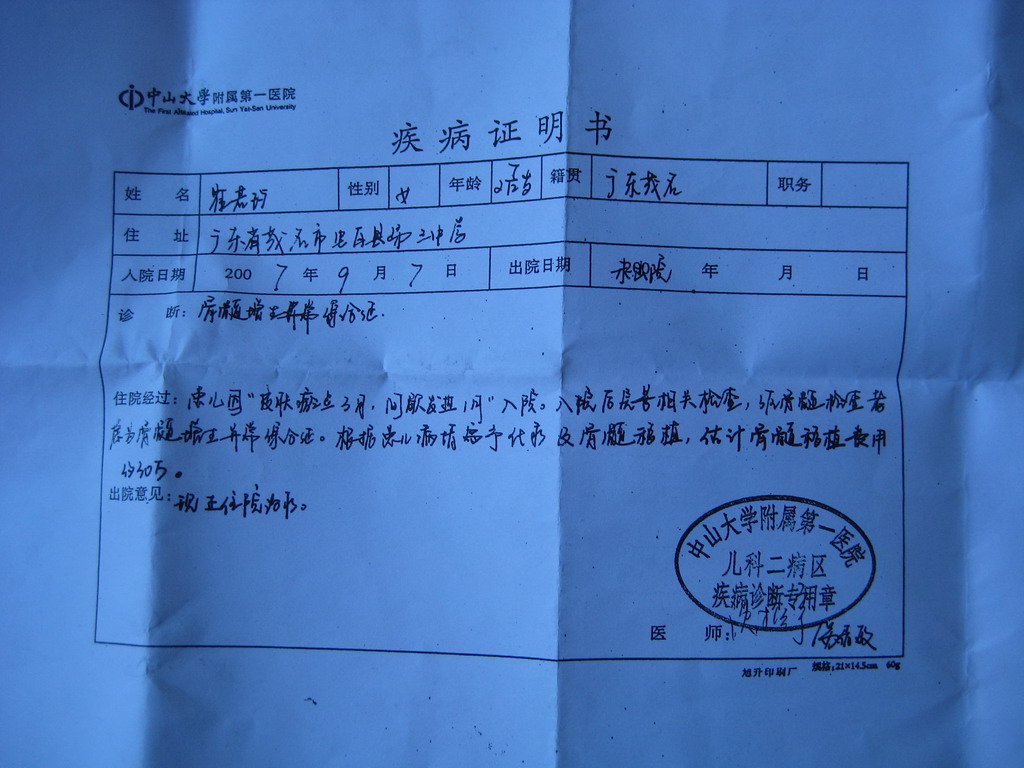 中山大学附属第一医院
The First Affiliated Hospital, Sun Yat-Sen University
疾病证明书
姓名 崔君 性别 女 年龄 2岁 籍贯 广东茂名 职务
住址 广东省茂名市
入院日期 2007年9月7日 出院日期 未出院 年 月 日
诊断: 骨髓增生异常综合征.
住院经过: 患儿因"皮肤瘀点3月,间歇发热1月"入院。入院后完善相关检查,骨髓检查
骨髓增生异常综合征。根据患儿病情需予化疗及骨髓移植,估计骨髓移植费用
约30万。
出院意见: 现正住院治疗。
中山大学附属第一医院
儿科二病区
疾病诊断专用章
医师:
旭升印刷厂 规格:21×14.5cm 60g